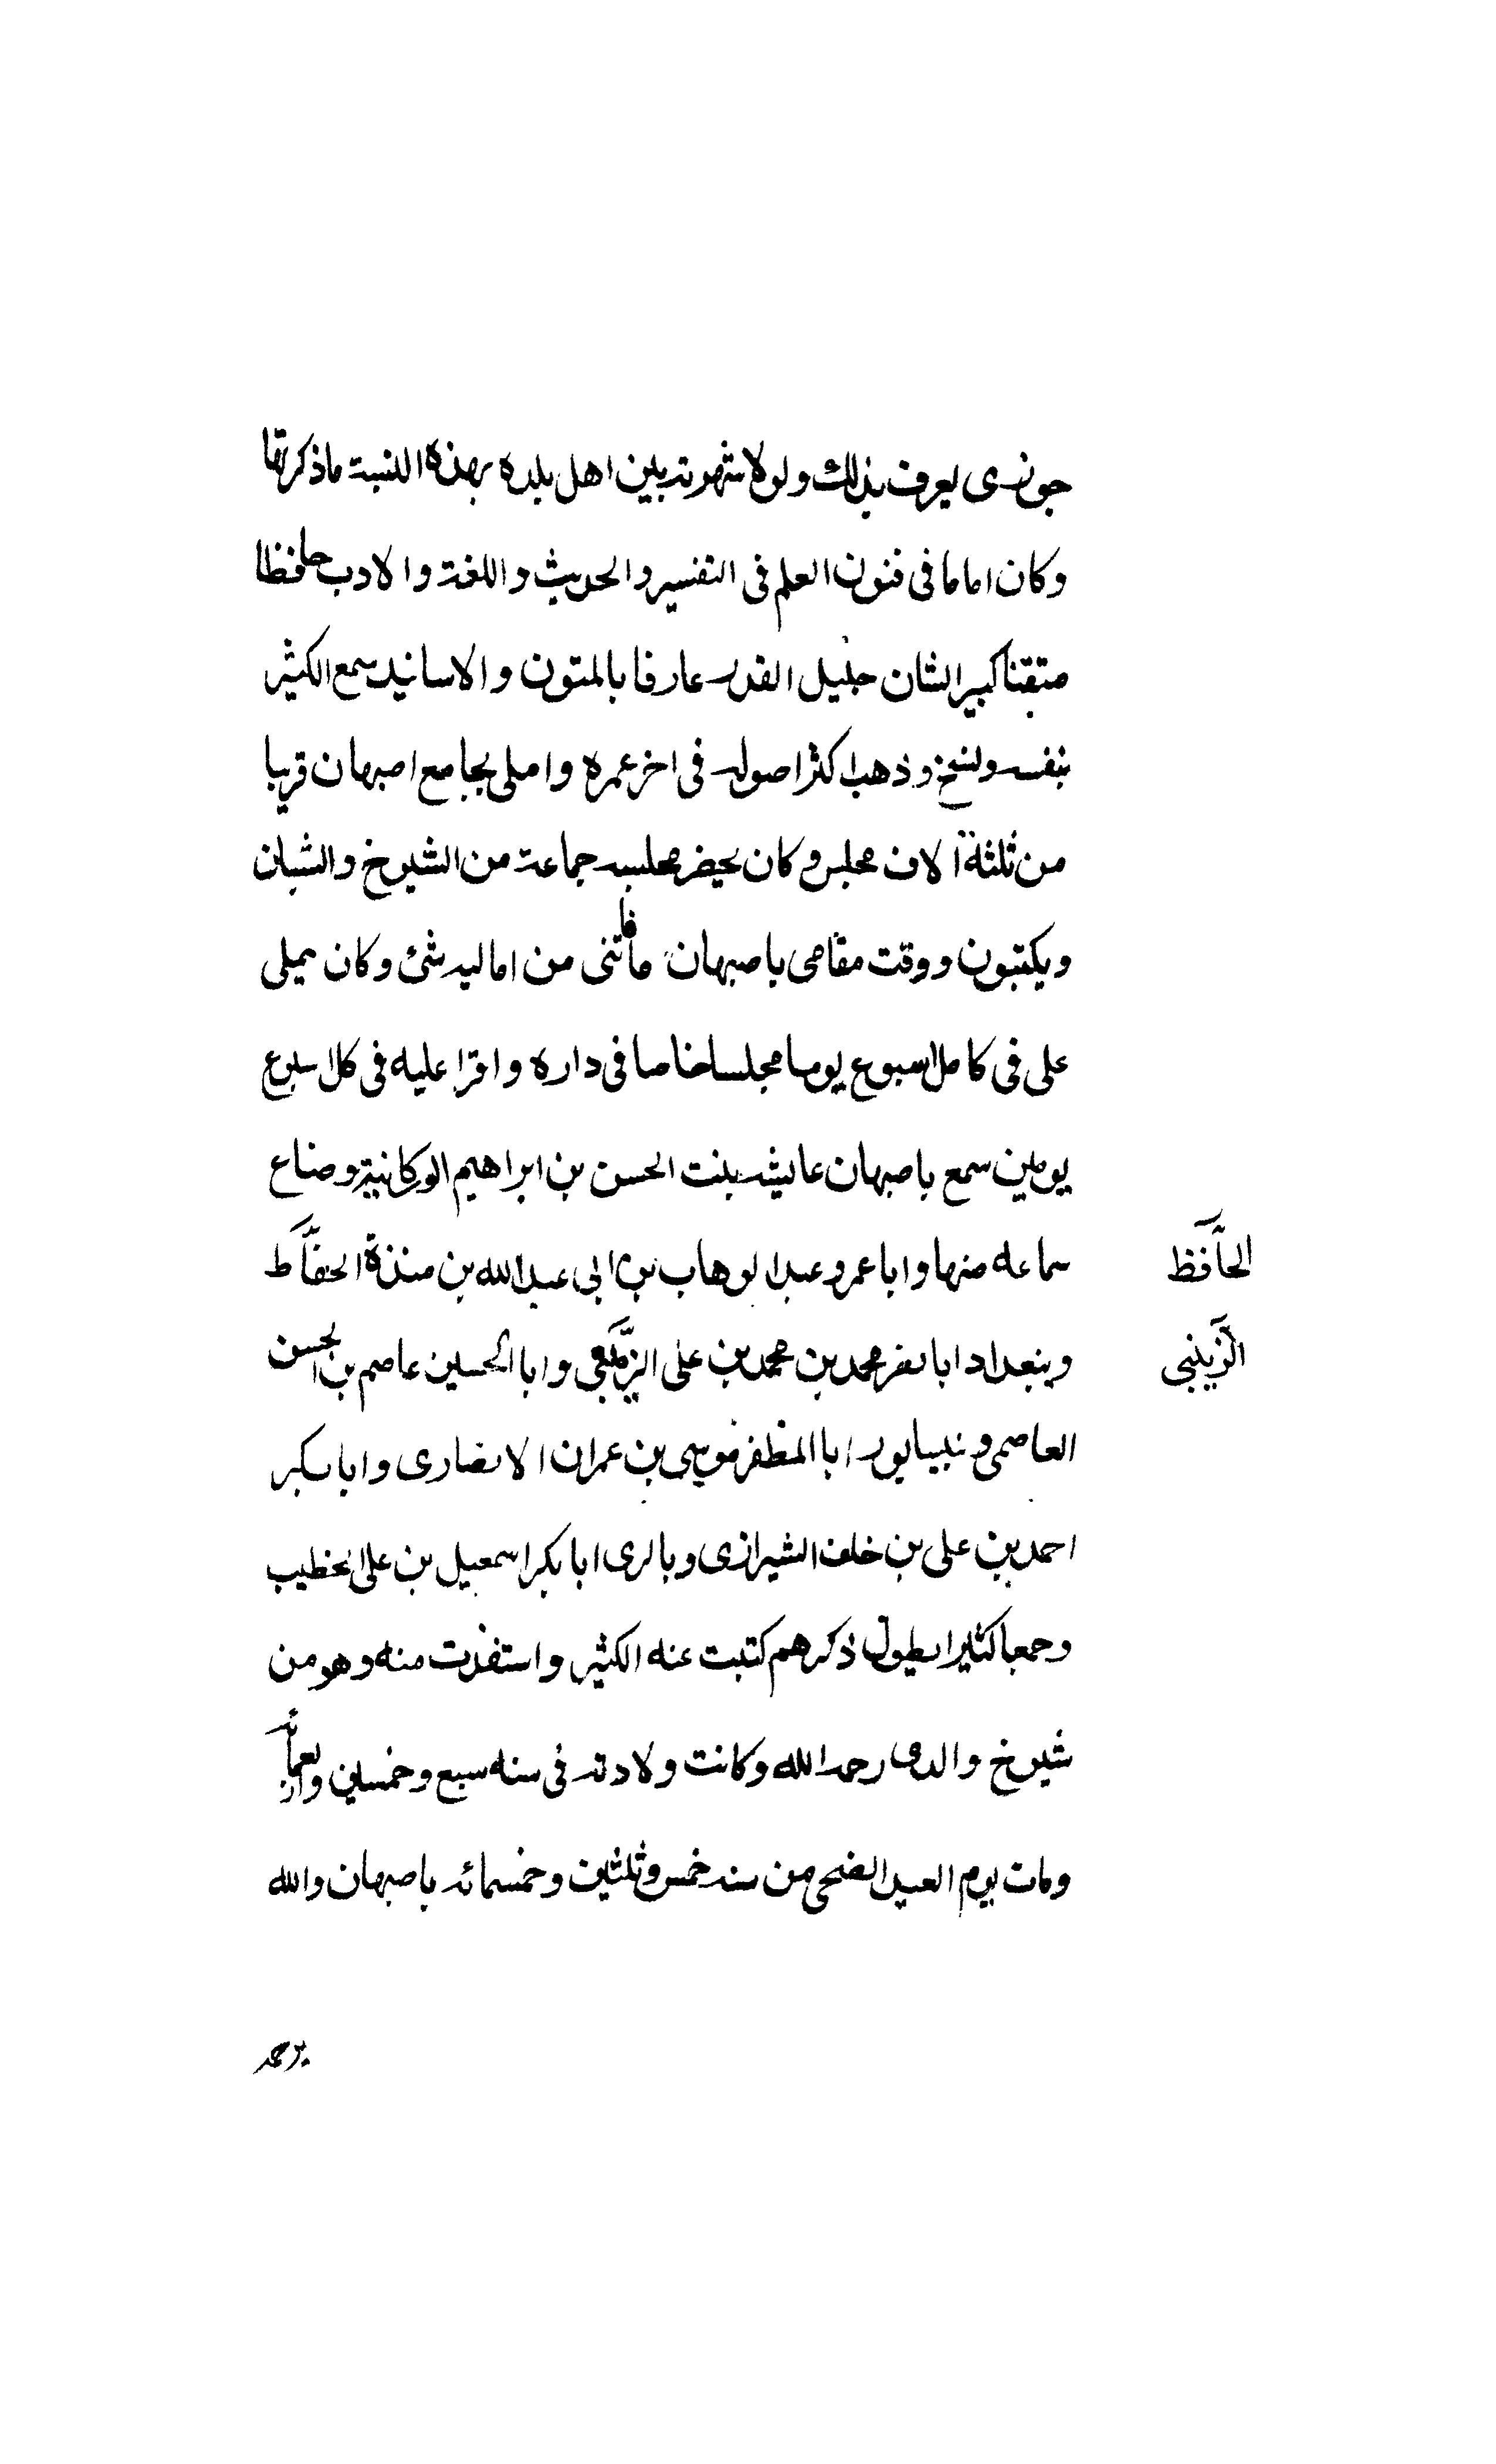 جوزى يعرف بذلك ولولا شهرته بين اهل بلده بهذه النسبة ما ذكرتها
وكان اماما فى فنون العلم فى التفسير والحديث واللغة والادب حافظا
متقنا كبير الشان جليل القدر عارفا بالمتون والاسانيد سمع الكثير
بنفسه ونسخ وذهب اكثر اصوله فى اخر عمره واملى بجامع اصبهان قريبا
من ثلثة آلاف مجلس وكان يحضر مجلسه جماعة من الشيوخ والشبان
ويكتبون ووقت مقامى باصبهان ما فاتنى من اماليه شئ وكان يملى
على فى كل اسبوع يوما مجلسا خاصا فى داره واقرا عليه فى كل اسبوع
يومين سمع باصبهان عايشه بنت الحسن بن ابراهيم الوركانية وضاع
سماعه منها وابا عمرو عبد الوهاب بن ابى عبد الله بن مندة الحفاظ
الحافظ
وببغداد ابا نصر محمد بن محمد بن على وابا الحسين عاصم بن الحسن
الزينبى
العاصمى وبنيسابور ابا المظفر موسى بن عمران الانصارى وابا بكر
احمد بن على بن خلف الشيرازى وبالرى ابا بكر اسمعيل بن على الخطيب
وجمعا كثيرا يطول ذكرهم كتبت عنه الكثير واستفدت منه وهو من
شيوخ والدى رحمه الله وكانت ولادته فى سنه سبع وخمسين واربعمائه
ومات يوم العيد الضحى من سنه خمس وثلثين وخمسمائه باصبهان والله
يرحمه